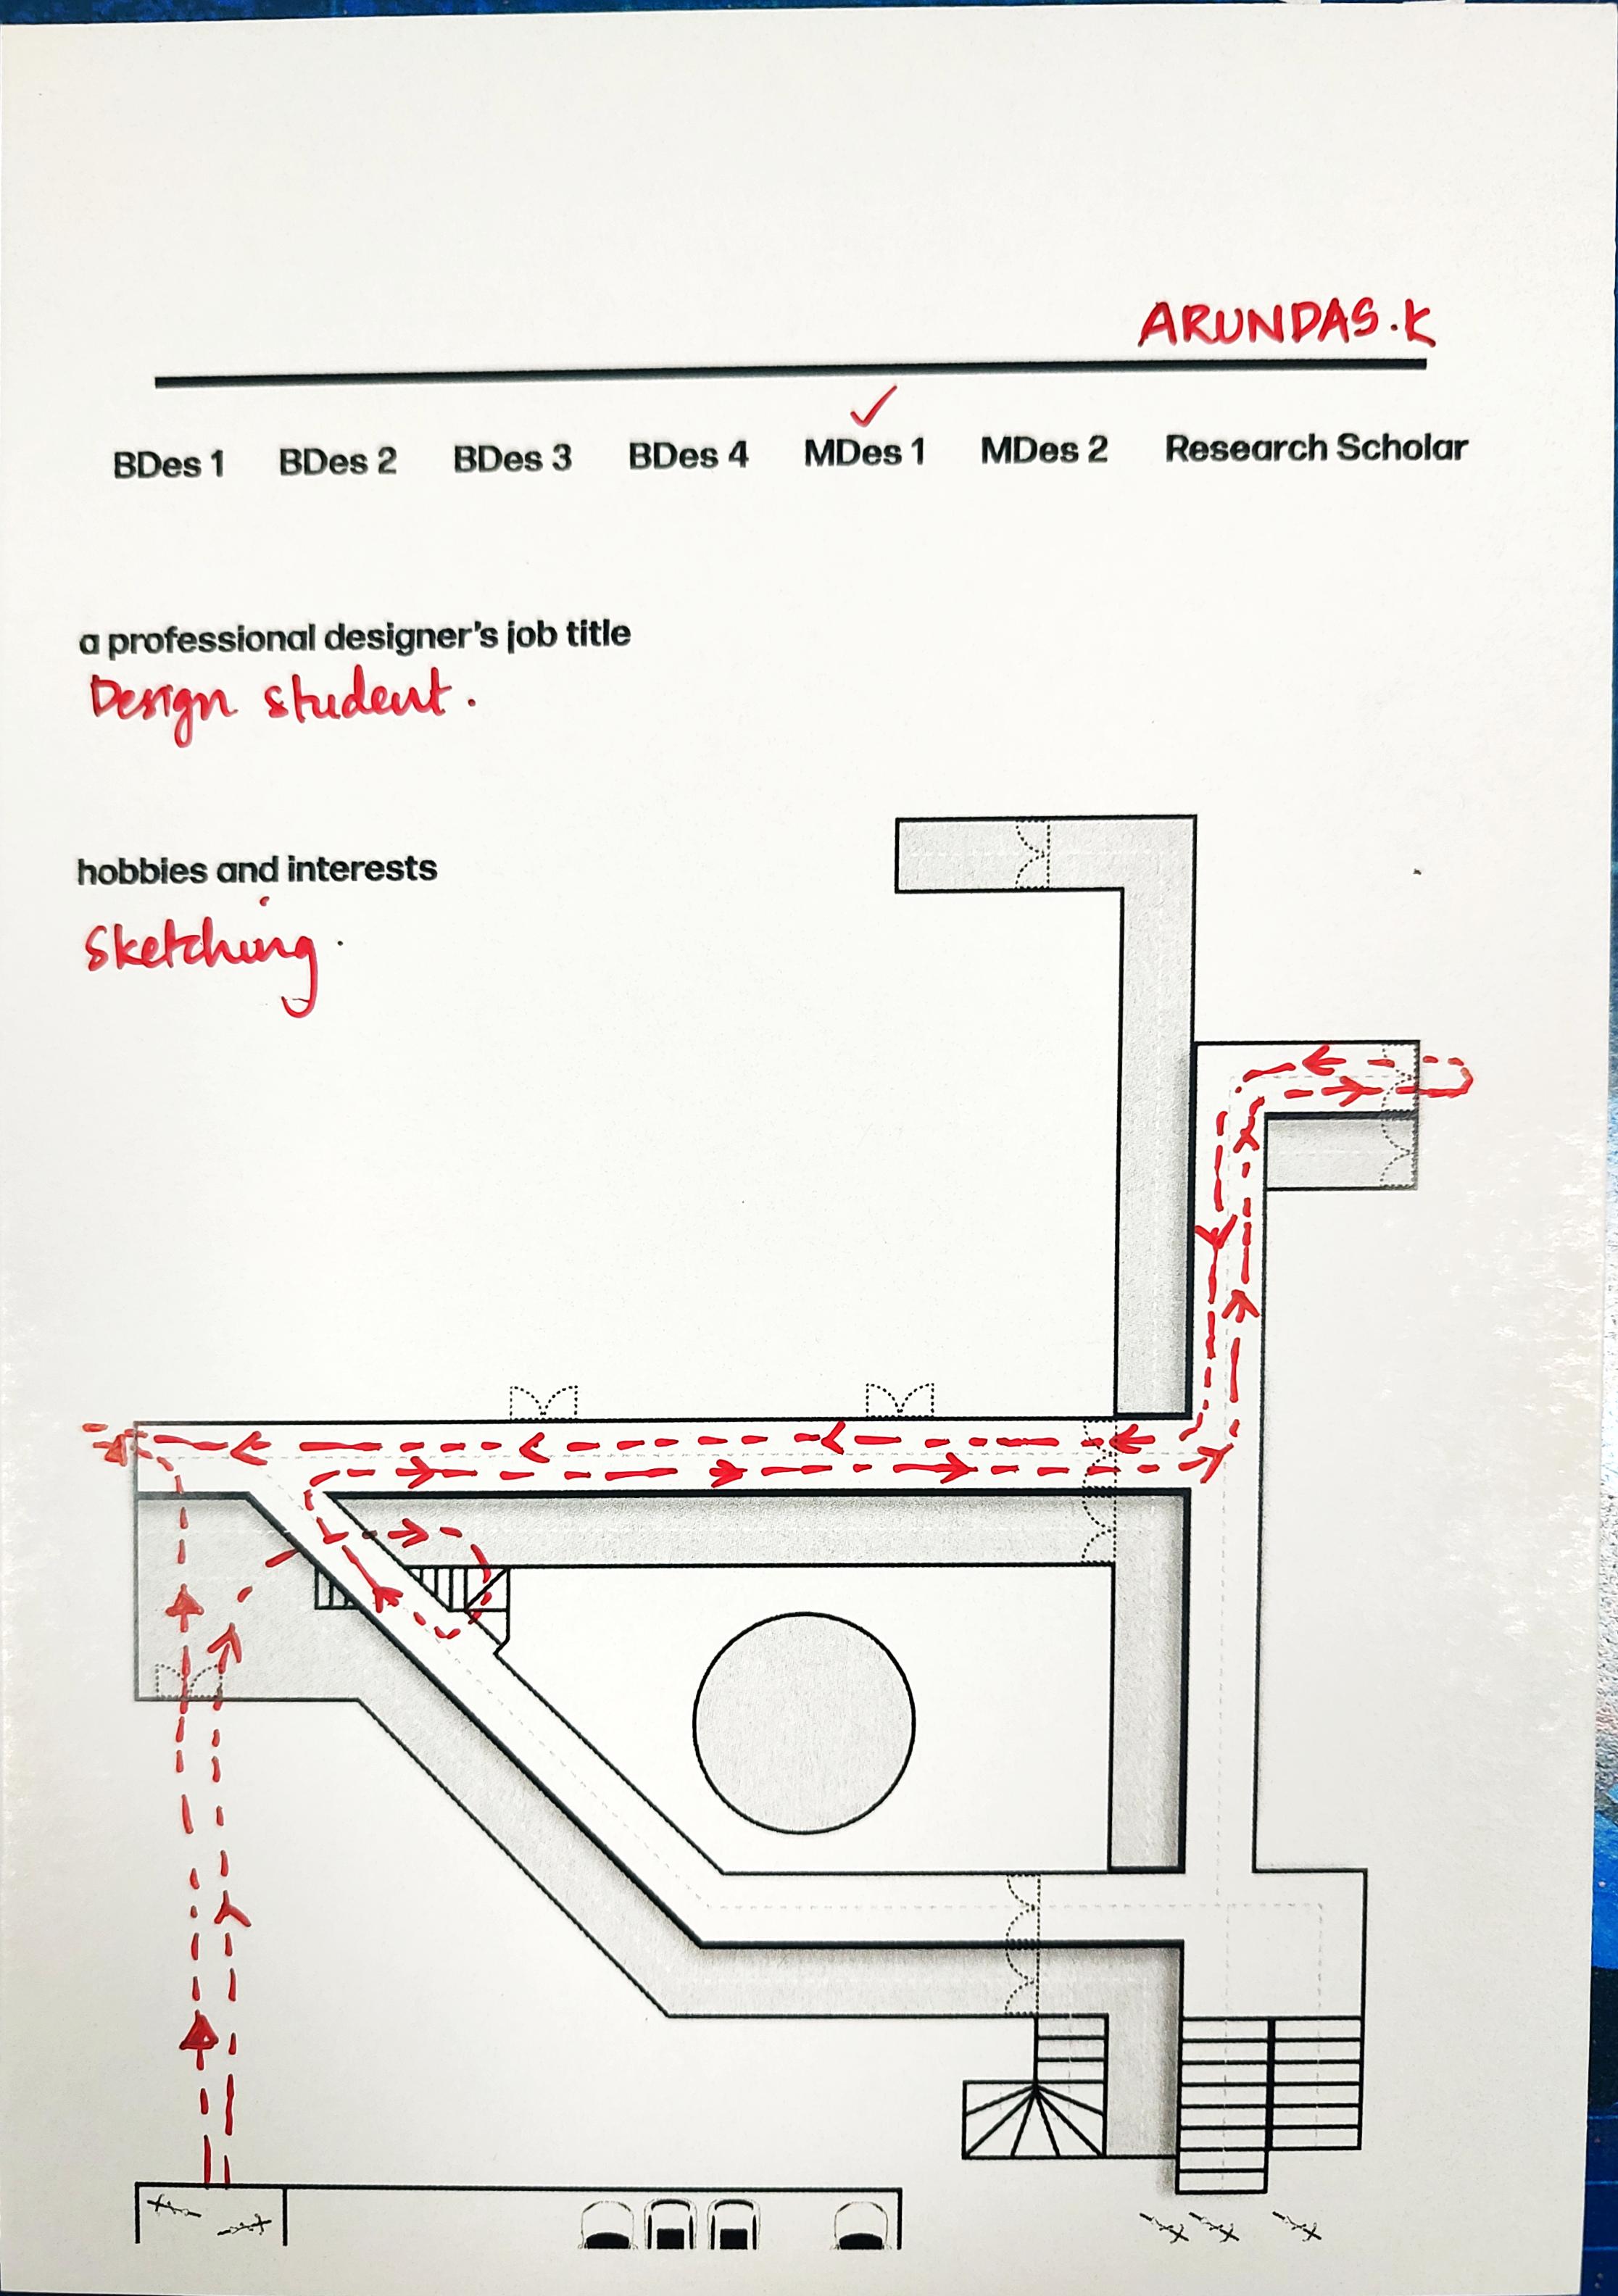 ARUNDAS.K
BDes 1 BDes 2 BDes 3 BDes 4 MDes 1 MDes 2 Research Scholar
a professional designer's job title
Design student.
hobbies and interests
Sketching.